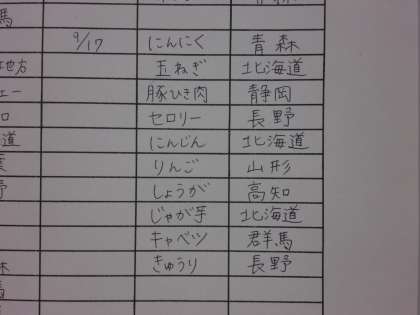 馬
9/17 にんにく 青森
地方 玉ねぎ 北海道
ェー 豚ひき肉 静岡
セロリー 長野
道 にんじん 北海道
りんご 山形
野 しょうが 高知
じゃが芋 北海道
キャベツ 群馬
きゅうり 長野